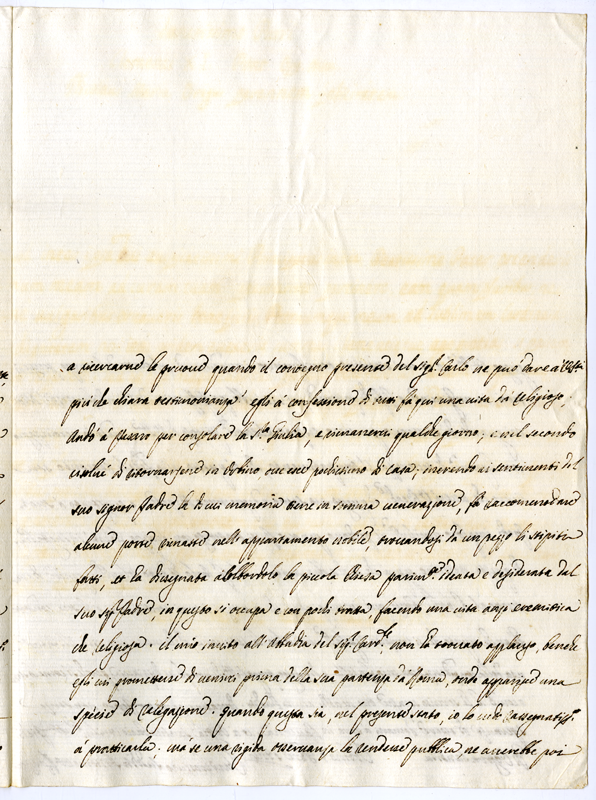 a ricercarne le pruove quando il contegno presente del sig.r Carlo ne può dare a'
più che chiara testimonianza: egli a confessione di tutti fà qui una vita da religioso;
Andò a Pesaro per consolare la Sig.ra Giulia, e rimanervi qualche giorno; e nel secondo
volse di ritornarsene in Urbino ove esce pochissimo di casa; inerendo ai sentimenti del
suo signor Padre la di cui memoria tiene in somma venerazione, fà raccomodare
alcune porte rimaste nell'appartamento nobile, trovandosi da un pezzo li stipiti
fatti, et ha disegnata abbellendola la piccola Chiesa parim.te ideata e desiderata dal
suo sig.r Padre, in questo si occupa e con pochi tratta, facendo una vita anzi eremitica
che religiosa. il mio invito all'Abbadia del sig.r Card.le non ha trovato applauso, benche
egli mi promettesse di venirvi prima della sua partenza da Roma, onde apparisce una
specie di relegazione. quando questa sia, nel presente stato, io lo vedo rassegnatiss.o
a praticarla; ma se una rigida osservanza la rendesse pubblica ne avverebbe poi